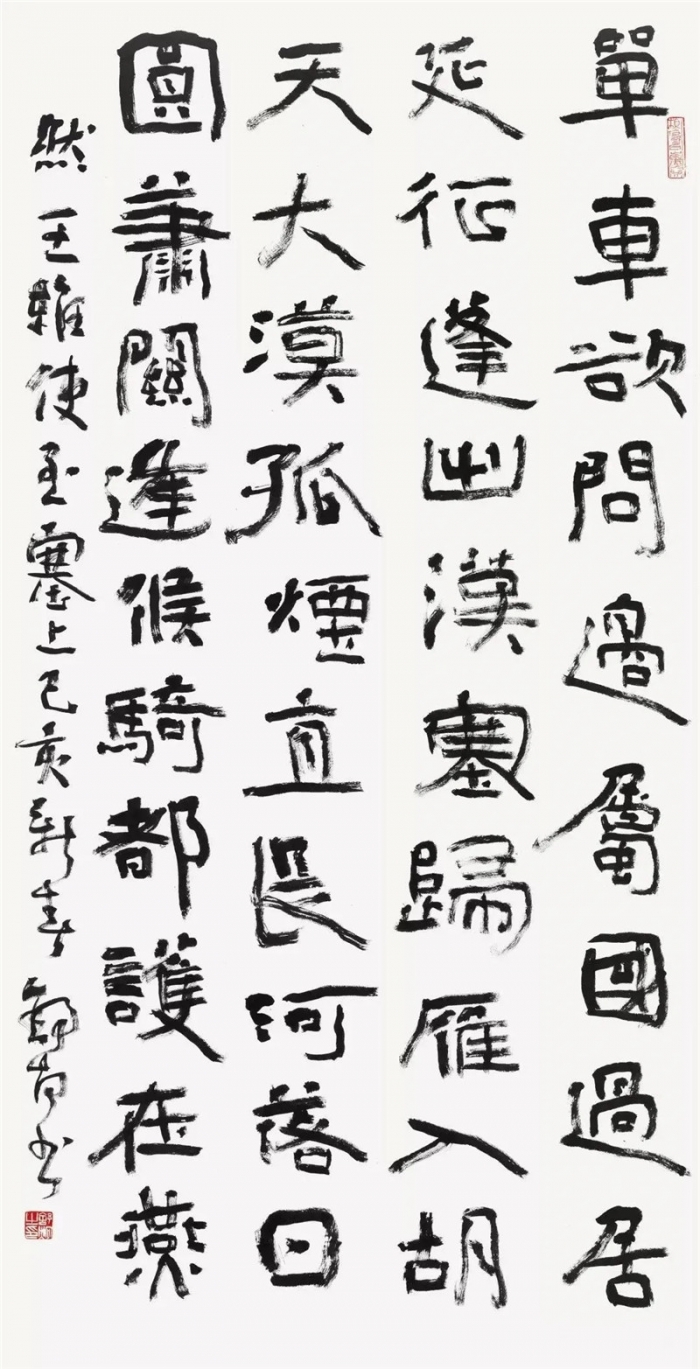 單車欲問邊屬國過居
延征蓬出漢塞歸雁入胡
天大漠孤煙直長河落日
圓蕭關逢候騎都護在燕
然王維使至塞上己亥新春书